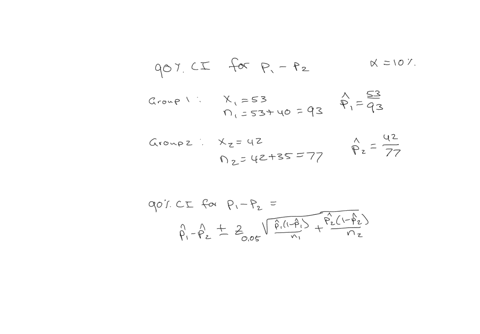 90% CI for p₁ - p₂ α = 10%
Group 1: x₁ = 53
n₁ = 53+40 = 93 p̂₁ = 53/93
Group 2: x₂ = 42
n₂ = 42+35 = 77 p̂₂ = 42/77
90% CI for p₁-p₂ =
p̂₁-p̂₂ ± z₀.₀₅ √(p̂₁(1-p̂₁)/n₁ + p̂₂(1-p̂₂)/n₂)